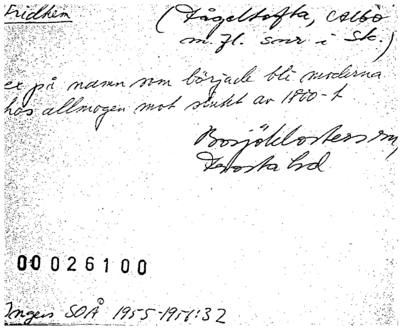 Fridhem
(Fågeltofta, Albo
m.fl. snr i Sk.)
ex på namn som började bli moderna
hos allmogen mot slutet av 1800-t
Bosjöklosters sn,
Frosta hd
00026100
Ingers SOÅ 1955-1956:32